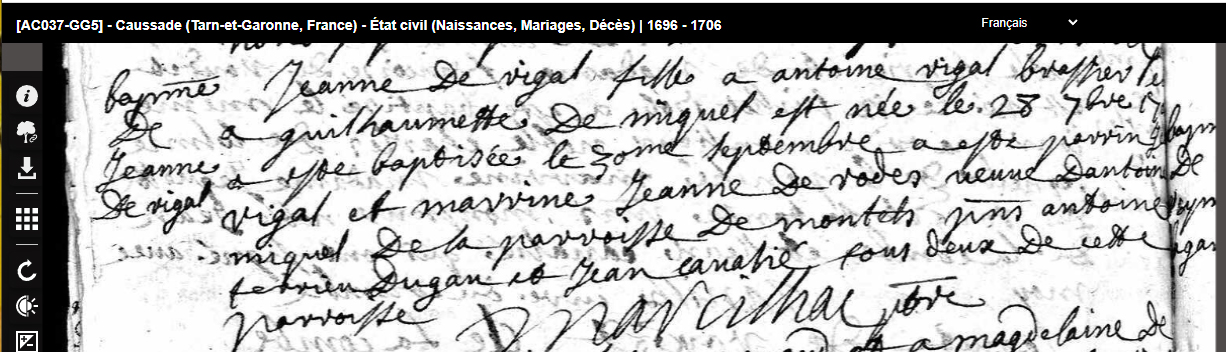 [AC037-GG5] - Caussade (Tarn-et-Garonne, France) - État civil (Naissances, Mariages, Décès) | 1696 - 1706
Français
bapme Jeanne De vigal fille a antoine vigal brassier
De a guilhaumette De miquel est née le 28 7bre
Jeanne a este baptisée le 30me septembre a este parrin
De vigal vigal et marrine Jeanne De rodes veuve Dantoine
miquel De la parroisse De montels pnts antoine
Dugan et Jean tous deux De cette
parroisse ptre
a magdelaine de